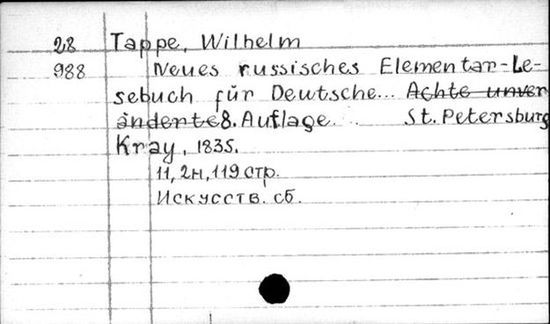 28 Tappe, Wilhelm
988 Neues russisches Elementar-Le-
sebuch für Deutsche... Achte unver
änderte 8. Auflage... St. Petersburg
Kray, 1835.
11, 2н, 119 стр.
Искусств. сб.